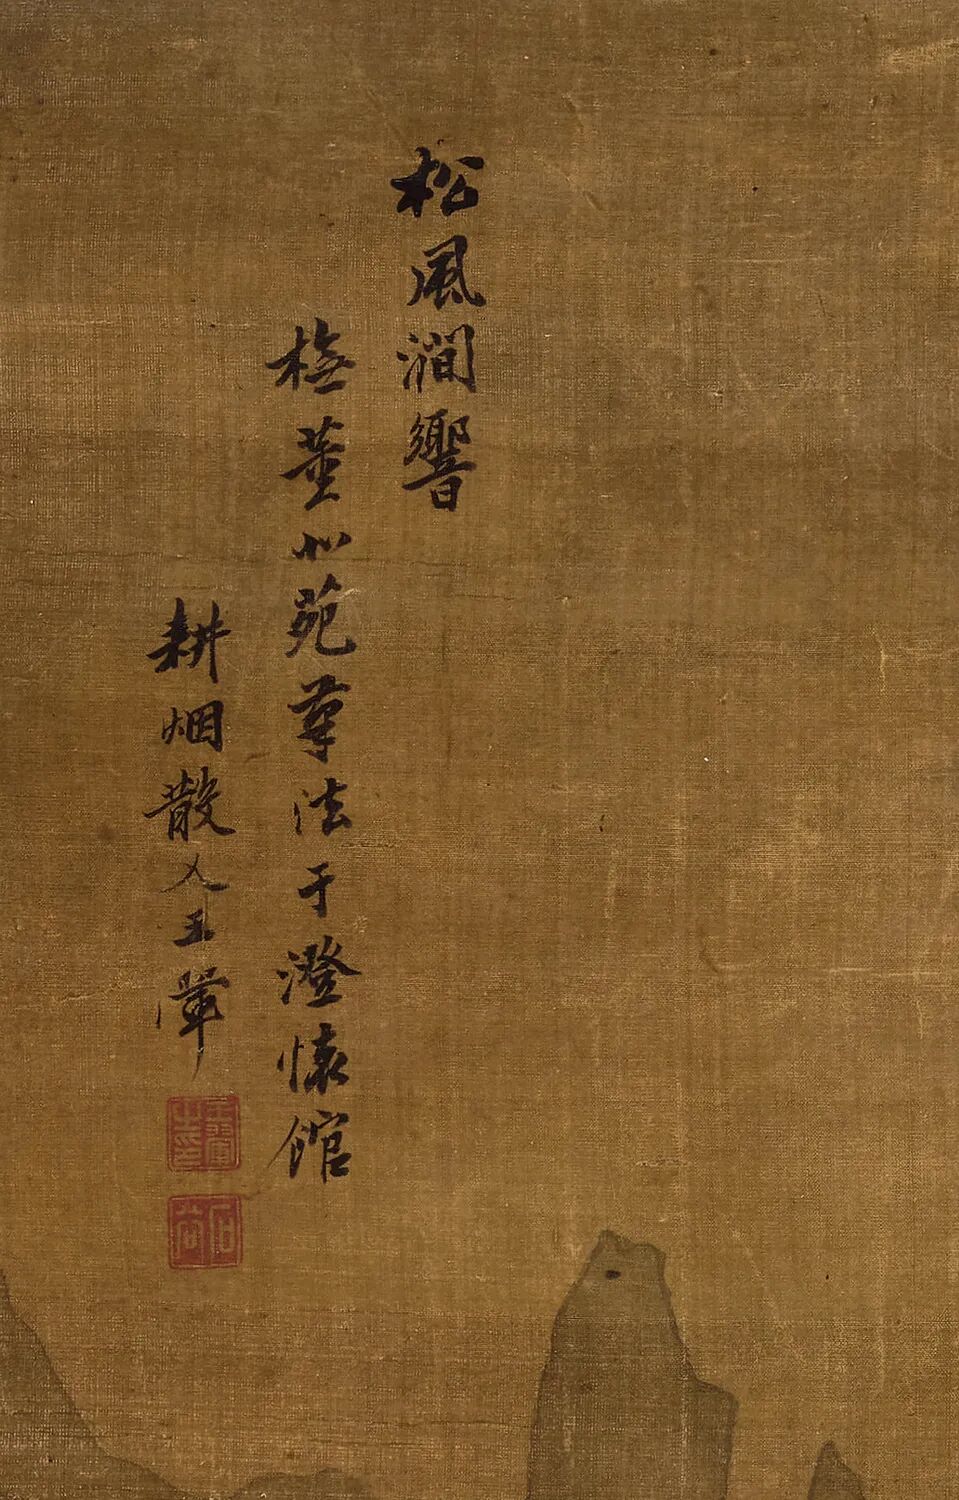 松風澗響
橅董北苑筆法于澄懷館
耕烟散人王翬
王翬之印
石谷